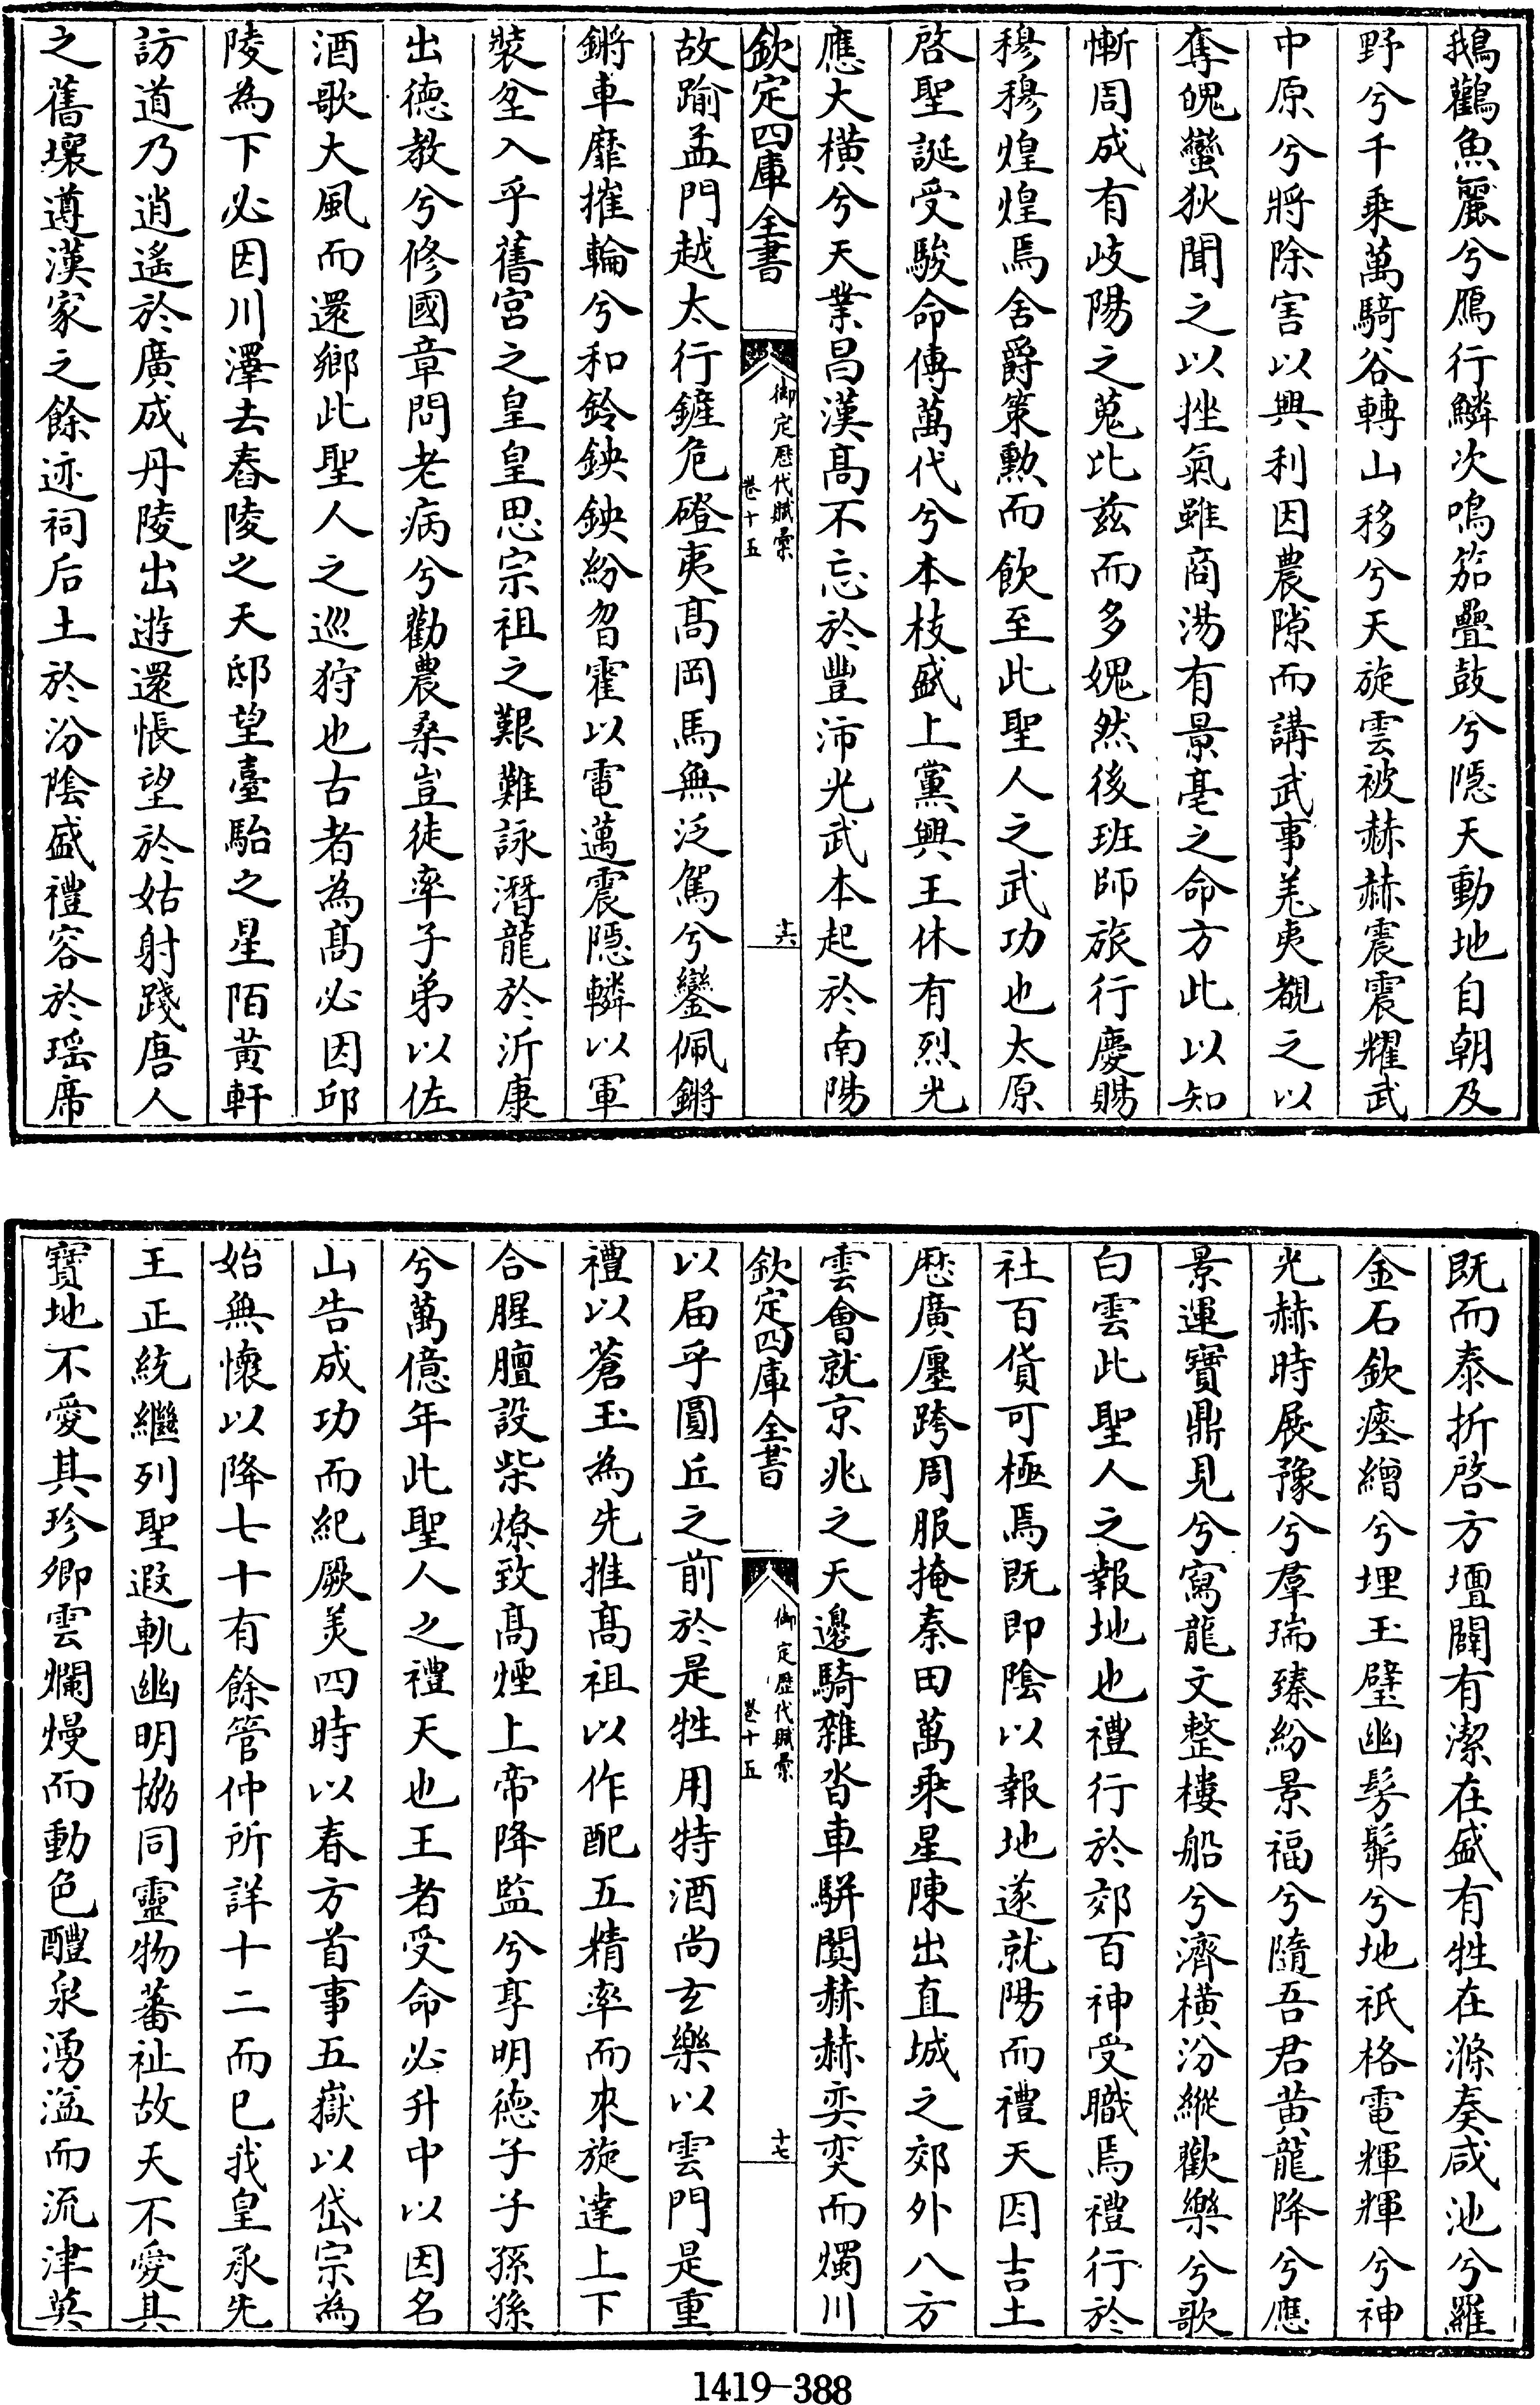 鵝鸛魚麗兮鴈行鱗次鳴笳疊鼓兮隠天動地自朝及
野兮千乘萬騎谷轉山移兮天旋雲被赫赫震震耀武
中原兮將除害以興利因農隙而講武事羌夷覩之以
奪魄蠻狄聞之以挫氣雖商湯有景亳之命方此以知
慚周成有岐陽之蒐比兹而多媿然後班師旅行慶賜
穆穆煌煌焉舍爵策勲而飲至此聖人之武功也太原
啓聖誕受駿命傳萬代兮本枝盛上黨興王休有烈光
應大横兮天業昌漢髙不忘於豐沛光武本起於南陽
欽定四庫全書
御定歴代賦彙
卷十五
十六
故踰孟門越太行鏟危磴夷髙岡馬無泛駕兮鑾佩鏘
鏘車靡摧輪兮和鈴鉠鉠紛曶霍以電邁震隠轔以軍
裝坌入乎舊宫之皇皇思宗祖之艱難詠潛龍於沂康
出德教兮修國章問老病兮勸農桑豈徒率子弟以佐
酒歌大風而還鄉此聖人之巡狩也古者為髙必因邱
陵為下必因川澤去舂陵之天邸望臺駘之星陌黄軒
訪道乃逍遙於廣成丹陵出遊還悵望於姑射踐唐人
之舊壤遵漢家之餘迹祠后土於汾陰盛禮容於瑶席
既而泰折啓方壇闢有潔在盛有牲在滌奏咸池兮羅
金石欽瘞繒兮埋玉璧幽髣髴兮地祇格電輝輝兮神
光赫時展豫兮羣瑞臻紛景福兮隨吾君黄龍降兮應
景運寶鼎見兮寫龍文整樓船兮濟横汾縱歡樂兮歌
白雲此聖人之報地也禮行於郊百神受職焉禮行於
社百貨可極焉既即陰以報地遂就陽而禮天因吉土
歴廣廛跨周服掩秦田萬乘星陳出直城之郊外八方
雲會就京兆之天邊騎雜沓車駢闐赫赫奕奕而燭川
欽定四庫全書
御定歴代賦彙
卷十五
十七
以届乎圓丘之前於是牲用特酒尚玄樂以雲門是重
禮以蒼玉為先推髙祖以作配五精率而來旋達上下
合腥膻設柴燎致髙煙上帝降監兮享明德子子孫孫
兮萬億年此聖人之禮天也王者受命必升中以因名
山告成功而紀厥美四時以春方首事五嶽以岱宗為
始無懷以降七十有餘管仲所詳十二而已我皇承先
王正統繼列聖遐軌幽明協同靈物蕃祉故天不愛其
寶地不愛其珍卿雲爛熳而動色醴泉湧溢而流津莢
1419-388